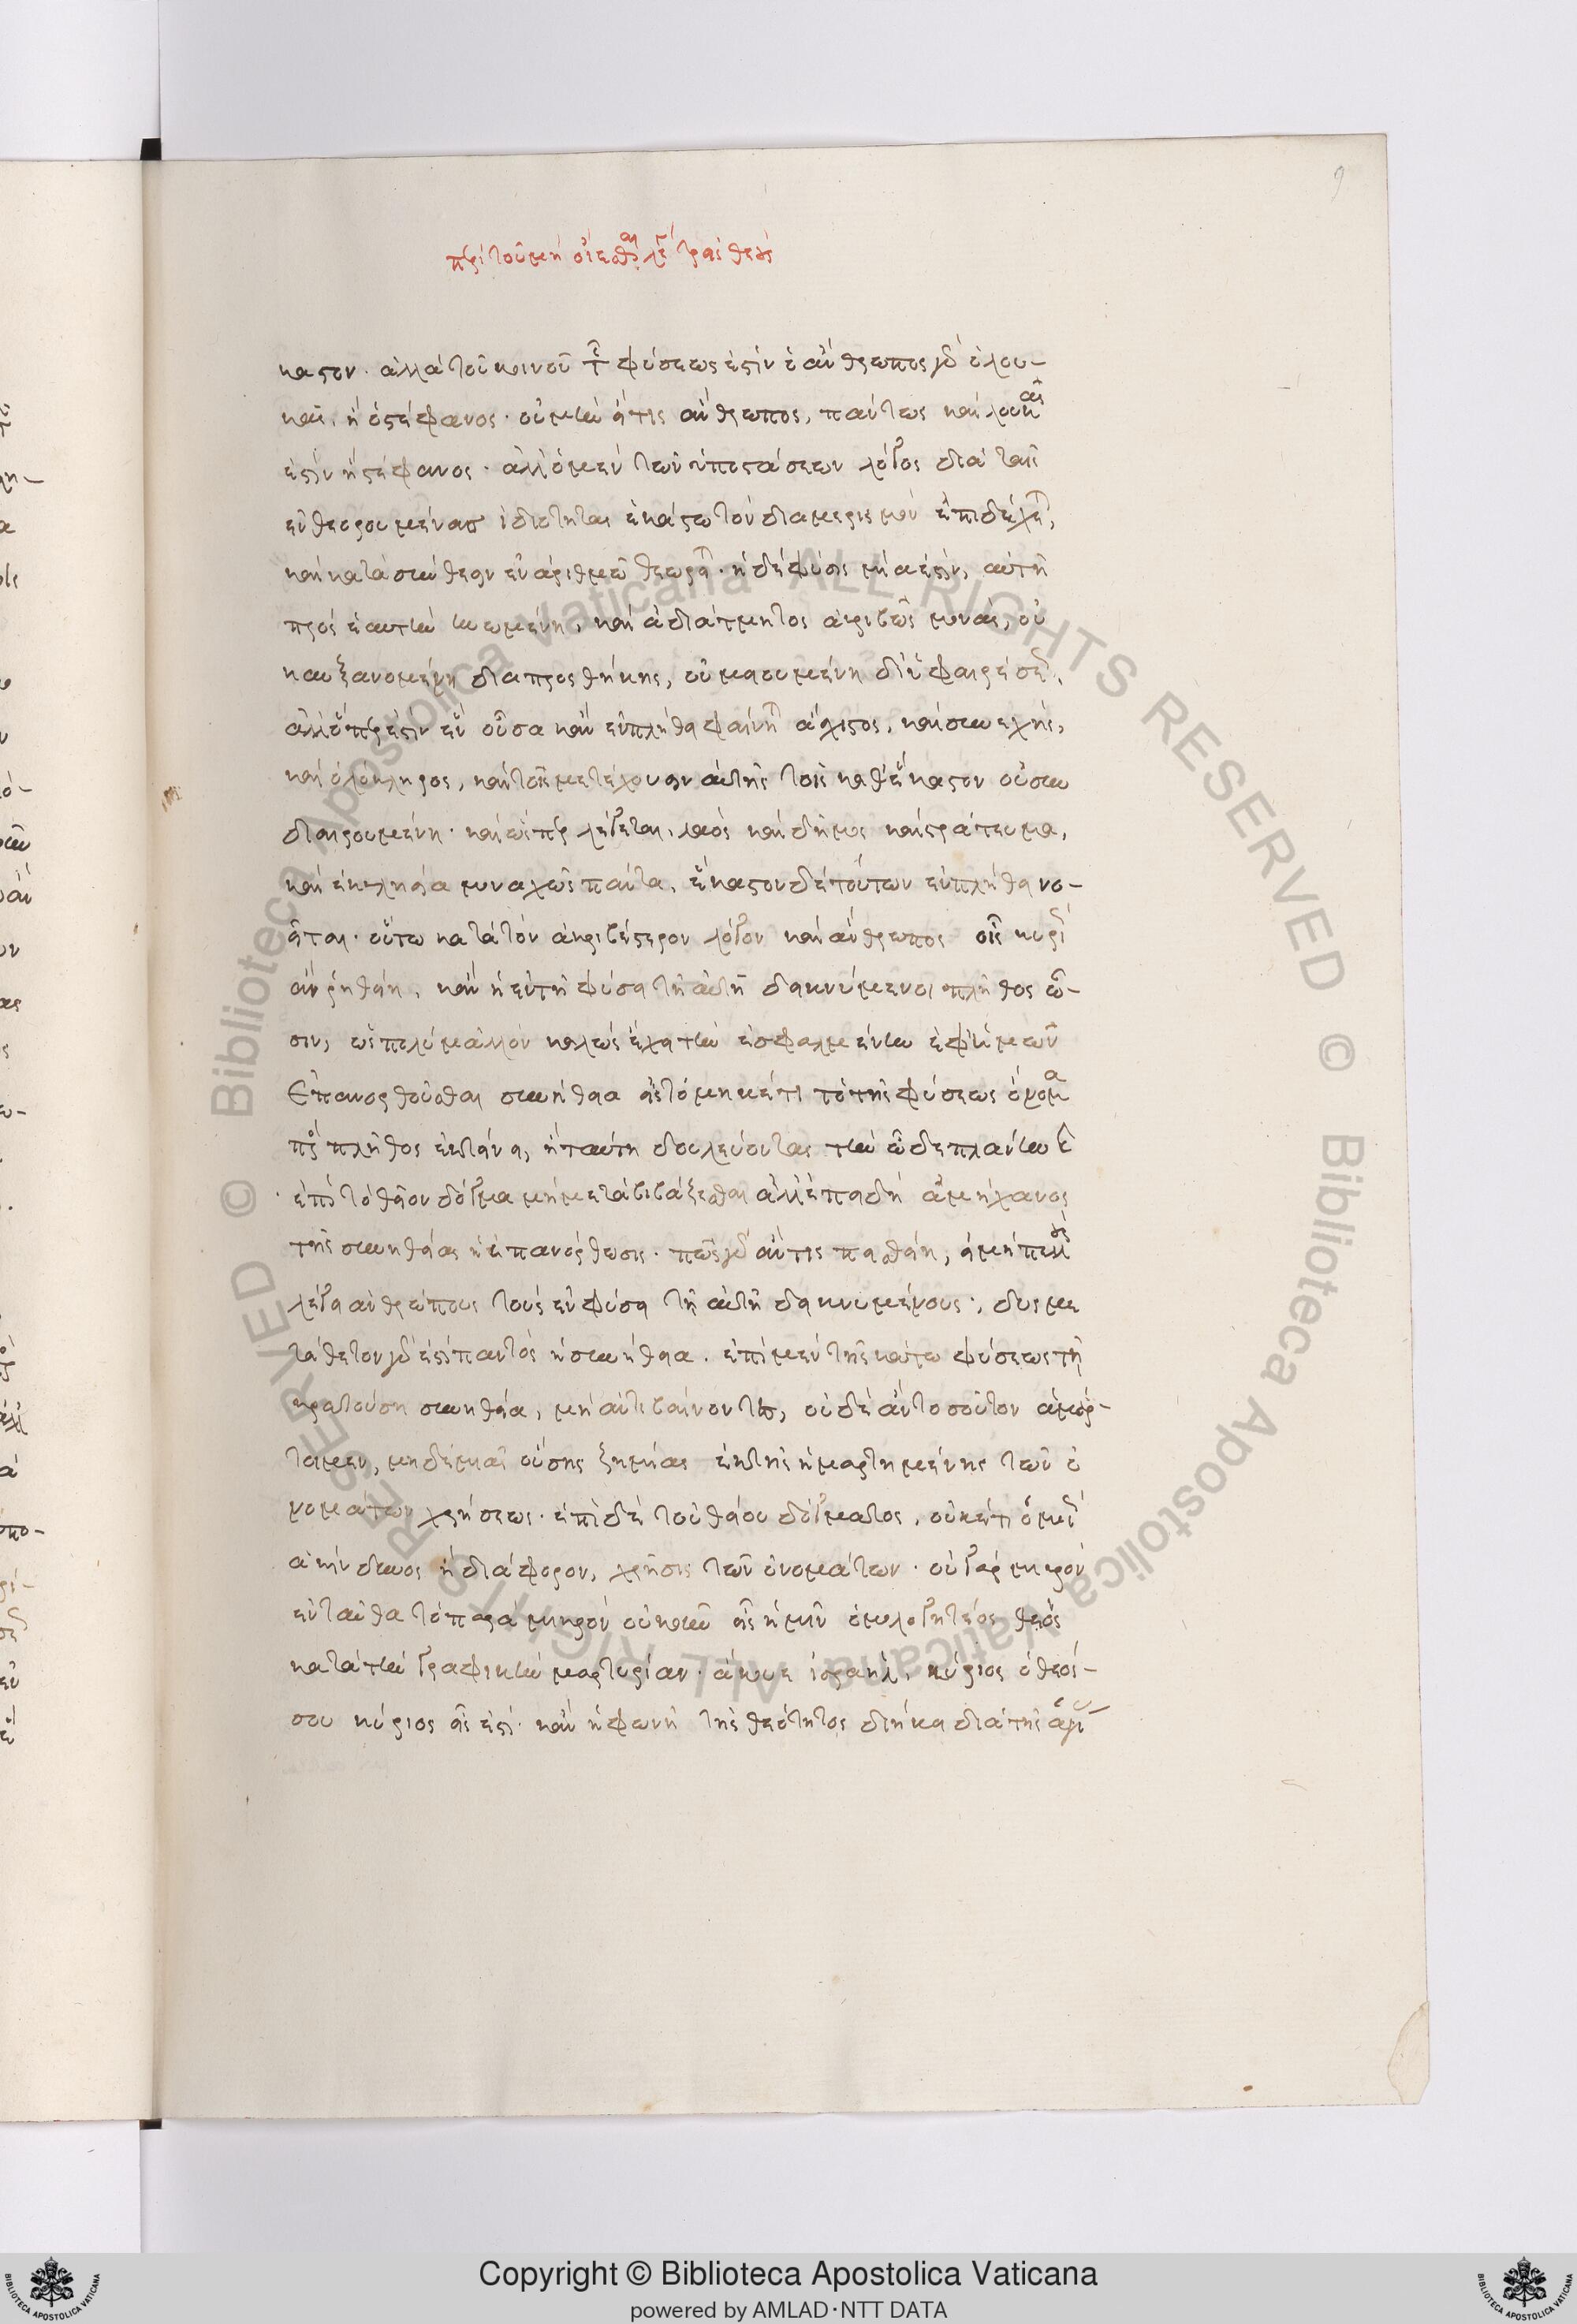 9
περὶ τοῦ μὴ οἴεσθαι λέγειν τρεῖς θεούς
καστον. ἀλλὰ τοῦ κοινοῦ τῆς φύσεώς ἐστιν ὁ ἄνθρωπος γὰρ ὁ λου-
κᾶς, ἢ ὁ στέφανος. οὐ μὴν εἴ τις ἄνθρωπος, πάντως καὶ λουκᾶς
ἐστὶν ἢ στέφανος. ἀλλ' ὁ μὲν τῶν ὑποστάσεων λόγος διὰ τὰς
ἐνθεωρουμένας ἰδιότητας ἑκάστω τὸν διαμερισμὸν ἐπιδέχεται,
καὶ κατὰ σύνθεσιν ἐν ἀριθμῶ θεωρεῖται. ἡ δὲ φύσις μία ἐστὶν, αὐτὴ
πρὸς ἑαυτὴν ἡνωμένη, καὶ ἀδιάτμητος ἀκριβῶς μονὰς, οὐ
κ αυξανομένη διὰ προσθήκης, οὐ μειουμένη δι' ὑφαιρέσεως,
ἀλλ' ὅπερ ἐστὶν ἓν οὖσα κἂν ἐν πλήθει φαίνηται ἄσχιστος, καὶ συνεχὴς,
καὶ ὁλόκληρος, καὶ τοῖς μετέχουσιν αὐτῆς τοῖς καθ' ἕκαστον οὐ συν
διαιρουμένη. καὶ ὥσπερ λέγεται, λαὸς καὶ δῆμος καὶ στράτευμα,
καὶ ἐκκλησία μοναχῶς πάντα, ἕκαστον δὲ τούτων ἐν πλήθει νο-
εῖται. οὕτω κατὰ τὸν ἀκριβέστερον λόγον καὶ ἄνθρωπος εἷς κυρίως
ἂν ῥηθείη, κἂν οἱ ἐν τῆ φύσει τῆ αὐτῆ δεικνύμενοι πλῆθος ὦ-
σιν, ὡς πολὺ μᾶλλον καλῶς ἔχει τὴν ἐσφαλμένην ἐφ' ἡμῶν
Ἐπανορθοῦσθαι συνήθεια εἰς τὸ μηκέτι τὸ τῆς φύσεως ὄνομα
πρὸς πλῆθος ἐκτείνει, ἢ ταύτη δουλεύοντας τὴν ὧδε πλάνην καὶ
ἐπὶ τὸ θεῖον δόγμα μὴ μεταβιβάζεσθαι ἀλλ' ἐπειδὴ ἀμήχανος
τῆς συνηθείας ἡ ἐπανόρθωσις. πῶς γὰρ ἄν τις πεισθείη, εἰ μὴ πολλοὺς
λέγει ἀνθρώπους τοὺς ἐν φύσει τῆ αὐτῆ δεικνυμένους., δυσμε
τάθετον γὰρ ἐπὶ παντὸς ἡ συνήθεια. ἐπὶ μὲν τῆς κάτω φύσεως τῆ
κρατούση συνηθεία, μὴ ἀντιβαίνοντες, οὐδὲ ἂν τοσοῦτον ἁμάρ-
τοιμεν, μηδεμιᾶς οὔσης ζημίας ἐκ τῆς ἡμαρτημένης τῶν ὀ
νομάτων χρήσεως. ἐπὶ δὲ τοῦ θείου δόγματος, οὐκέτι ὁμοίως
ἀκίνδυνος ἡ διάφορον, χρῆσις τῶν ὀνομάτων. οὐ γὰρ μικρὸν
ἐνταῦθα τὸ παρὰ μικρὸν οὐκοῦν εἷς ἡμῖν ὁμολογητέος θεὸς
κατὰ τὴν γραφικὴν μαρτυρίαν. ἄκουε ἰσραὴλ, κύριος ὁ θεός-
σου κύριος εἷς ἐστὶ. κἂν ἡ φωνὴ τῆς θεότητος διήκει διὰ τῆς ἁγίας
Copyright © Biblioteca Apostolica Vaticana
powered by AMLAD·NTT DATA